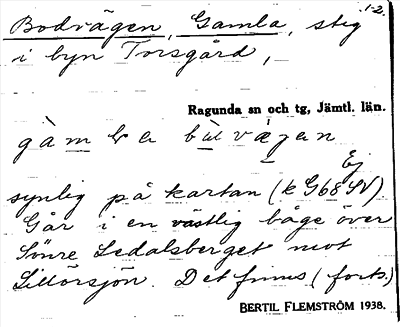 1-2.
Bodvägen, Gamla, stig
i byn Torsgård,
Ragunda sn och tg, Jämtl. län.
Ej
synlig på kartan (k G68 SV)
Går i en västlig båge över
Sönre Ledalsberget mot
Lillörsjön. Det finns (forts.)
BERTIL FLEMSTRÖM 1938.